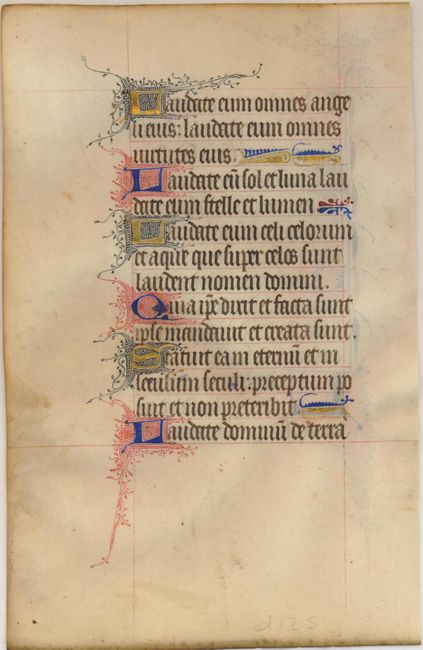 Laudate eum omnes ange
li eius: laudate eum omnes
uirtutes eius.
Laudate eū sol et luna lau
date eum stelle et lumen
Laudate eum celi celorum
et aque que super celos sunt
laudent nomen domini.
Quia ip̄e dixit et facta sunt
ipse mandauit et creata sunt.
Statuit ea in eternū et in
seculum seculi: preceptum po
suit et non preteribit
Laudate dominū de terra
d125